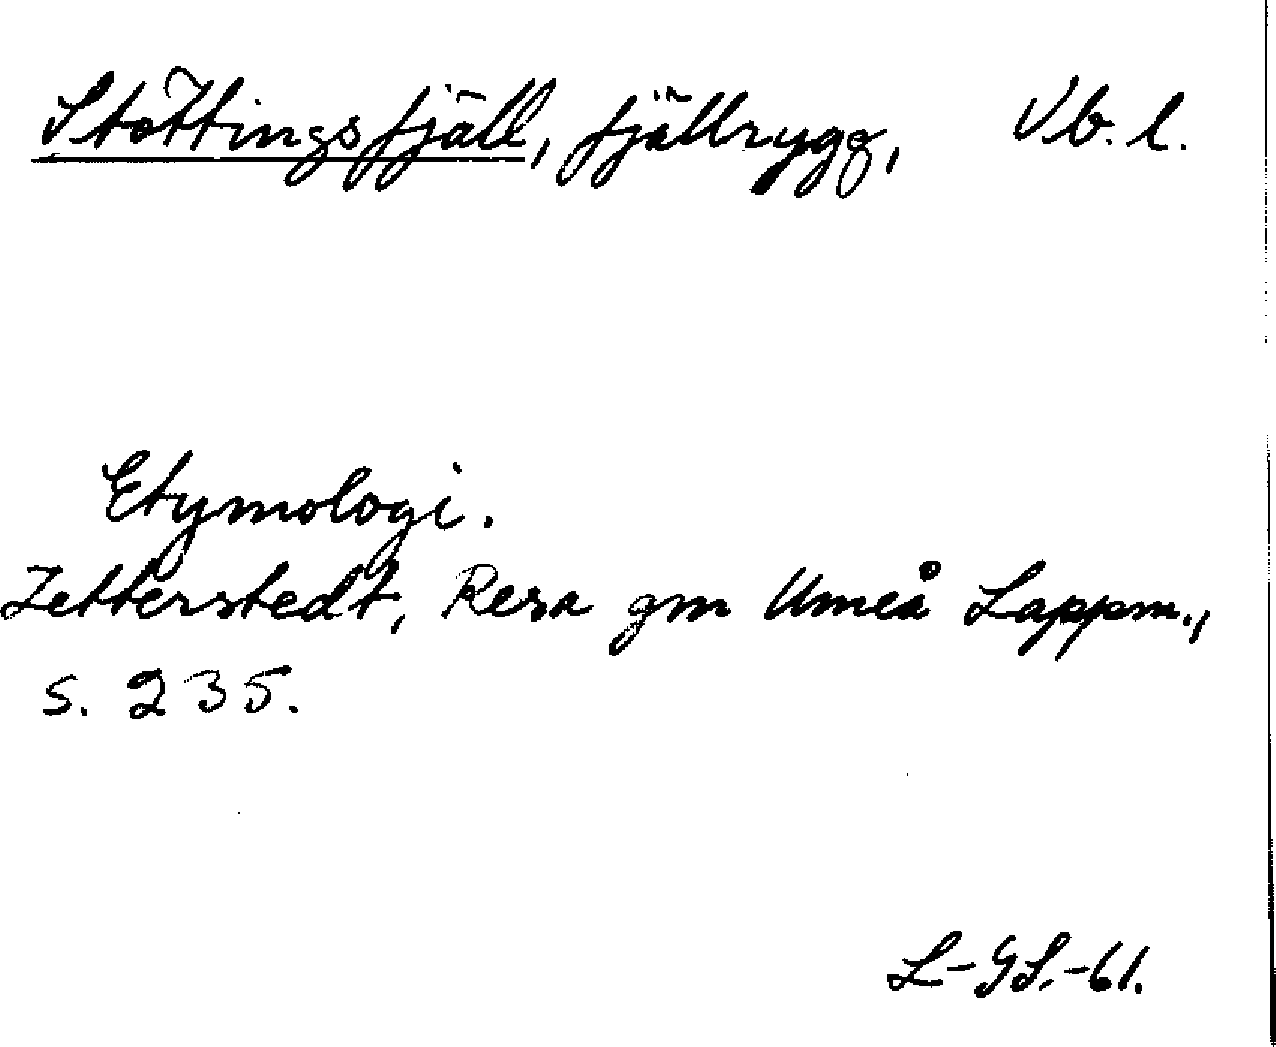 Stöttingsfjäll, fjällrygg, Vb. l.
Etymologi.
Zetterstedt, Resa gm Umeå Lappm.,
s. 235.
L-GS.-61.